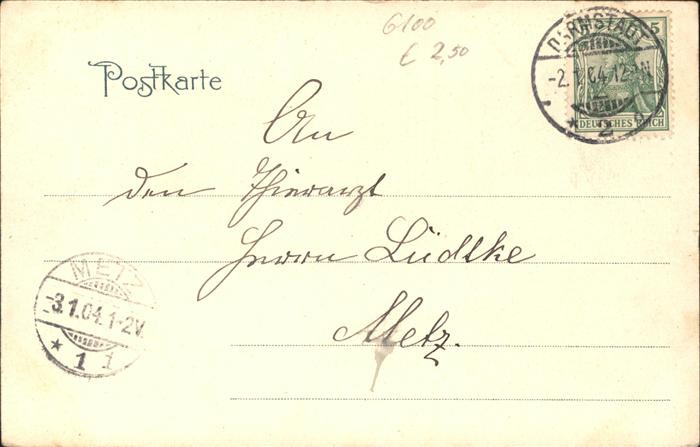 6100
£ 2,50
DARMSTADT
-2.1.04.12-1N
* 2
5
DEUTSCHES REICH
Postkarte
An
den Thierarzt
Herrn Lüdtke
Metz.
METZ
-3.1.04.1-2V.
* 1 1